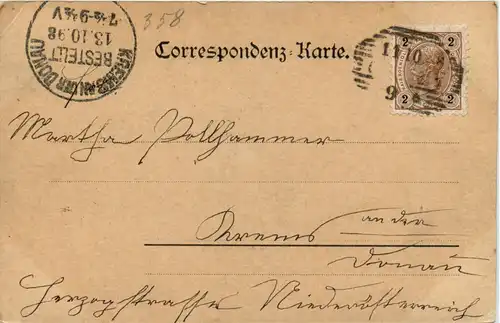 358
KREMS AN DER DONAU
BESTELLT
13.10.98
7½-9½V
Correspondenz-Karte.
2 2
2 2
Martha Pollhammer
Krems an der
Donau
Herzogstrasse Niederösterreich